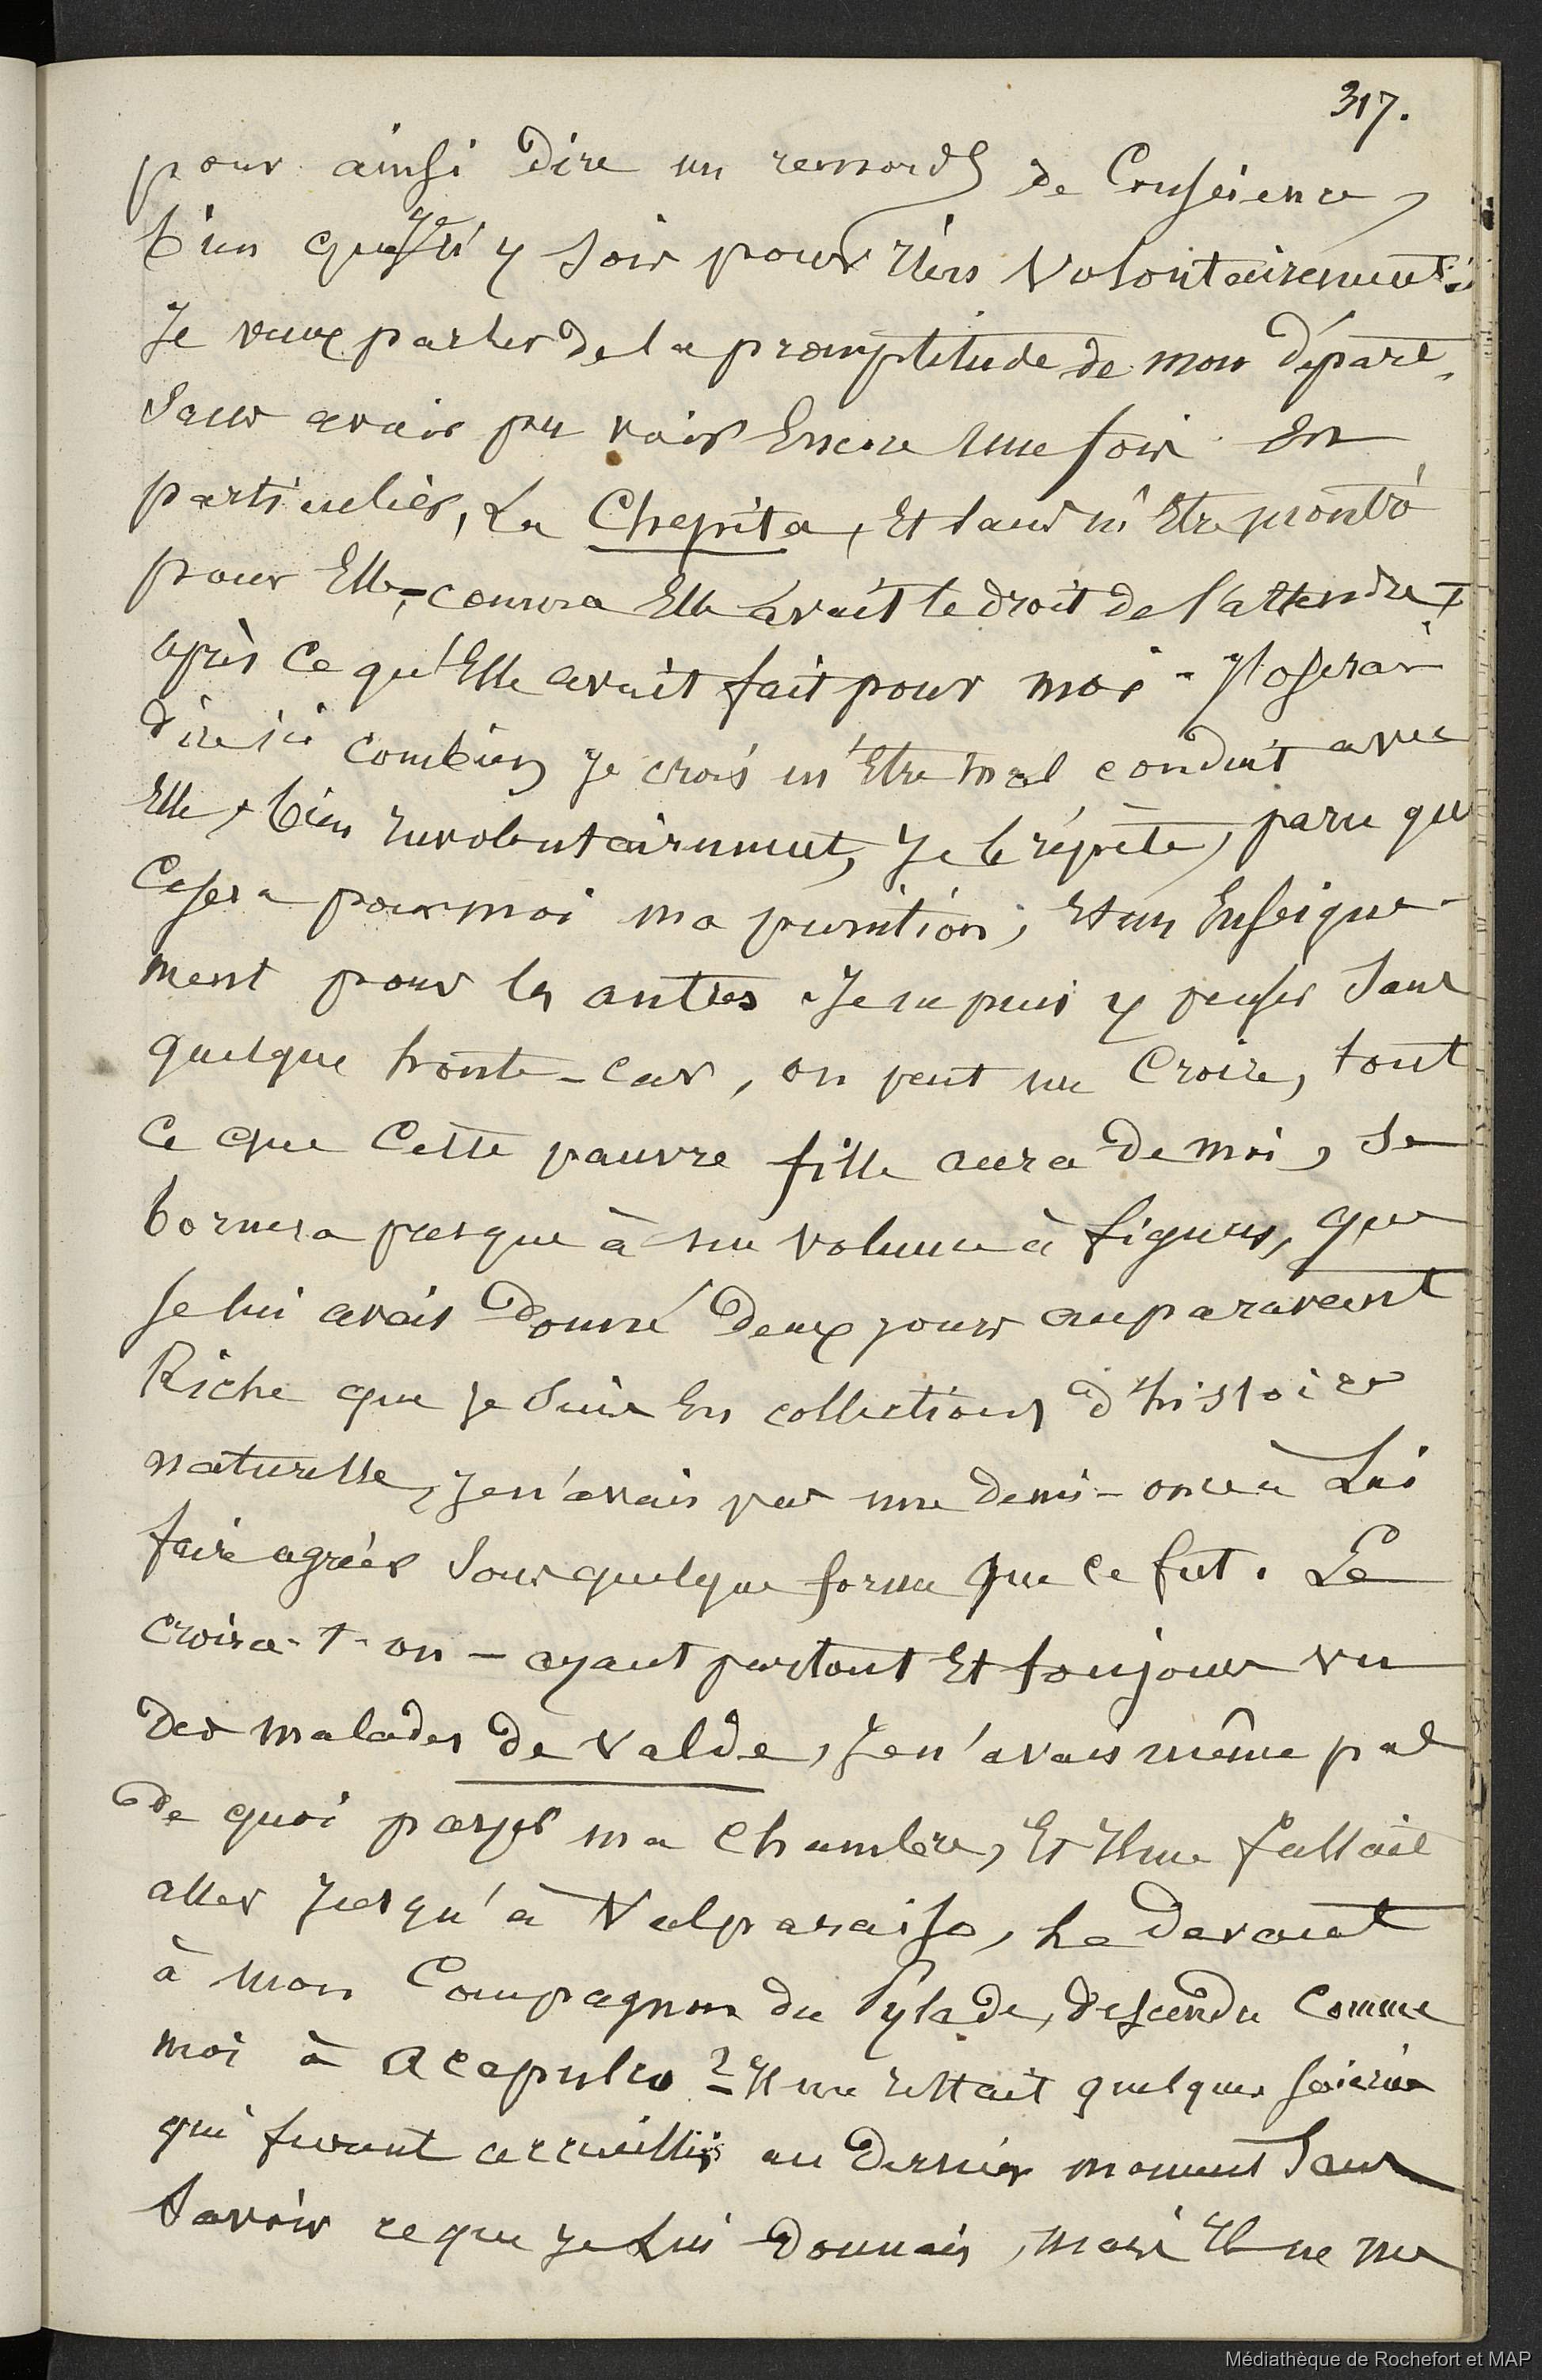 317.
pour ainsi dire un remords de Conscience,
bien que je n'y sois pour rien volontairement:
Je veux parler de la promptitude de mon départ,
sans avoir pu voir Encore Une fois En
particulier, La Chepita, Et sans m'Etre montré
pour Elle, - comme Elle avait le droit de l'attendre -
après Ce qu'Elle avait fait pour moi - J'oserai
dire ici combien Je crois m'Etre mal conduit avec
Elle, bien Involontairement, Je le répète, parce que
Ce sera pour moi ma punition, Et un Enseigne-
ment pour les autres. Je ne puis y penser Sans
quelque honte - Car, on peut me Croire, tout
Ce que Cette pauvre fille aura de moi, Se
bornera presque à un volume à figures, que
Je lui avais donné deux jours auparavant
Riche que Je Suis En collections d'histoire
naturelle, Je n'avais pas une demi-once à Lui
faire agréer Sous quelque forme que Ce fut. Le
Croira-t-on - ayant partout Et toujours vu
des malades de valde, Je n'avais même pas
de quoi payer ma Chambre, Et Il me fallait
aller Jusqu'à Valparaiso, Le devant
à mon Compagnon du Pylade, descendu Comme
moi à Acapulco? - Il me restait quelques soieries
qui furent accueillis au dernier moment Sans
Savoir ce que Je Lui donnais, mais Il ne me